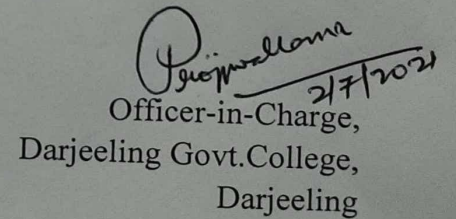 2/7/2021
Officer-in-Charge,
Darjeeling Govt.College,
Darjeeling